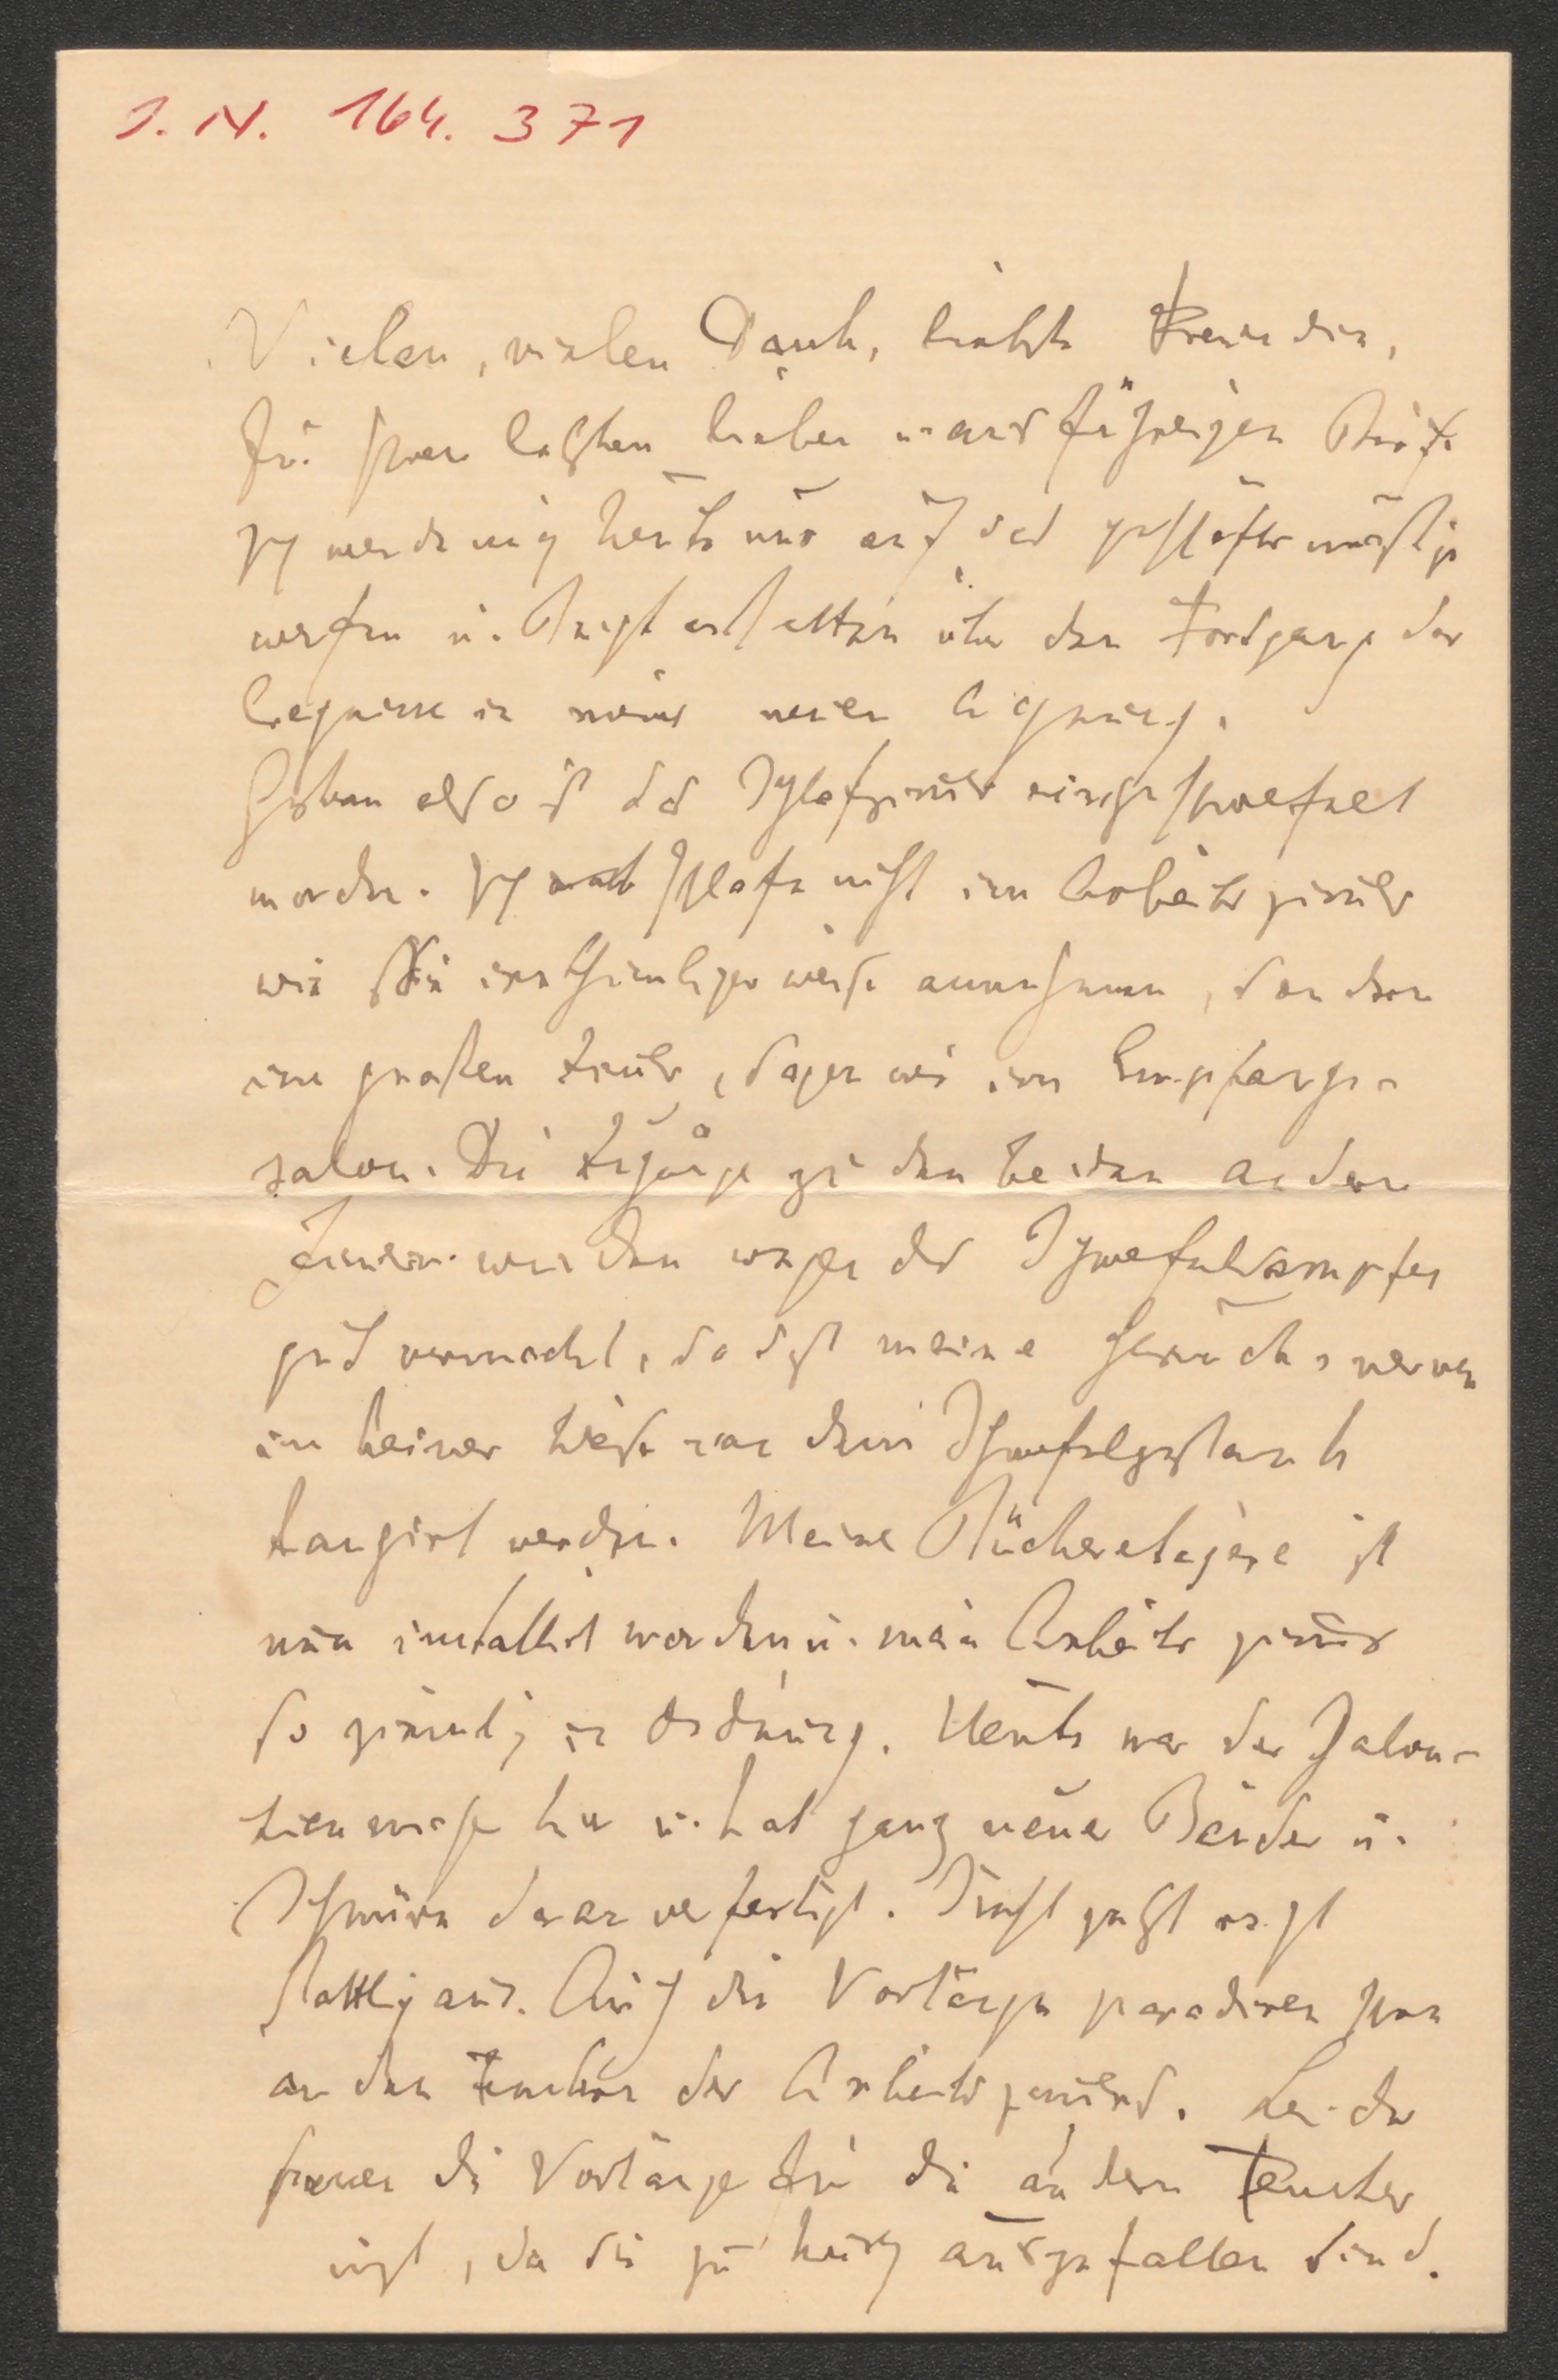 I. N. 164.371
Vielen, vielen Dank, liebste Freundin,
für Ihren letzten lieben u. ausführlichen Brief.
Ich werde mich heute nur auf das geschäftsmäßige
werfen u. Bericht erstatten über den Fortgang der
Ereignisse in meiner neuen Wohnung.
Gestern also ist das Schlafzimmer eingeschwefelt
worden. Ich schlafe nicht im Arbeitszimmer
wie Sie irrthümlicher weise annehmen, sondern
im großen Zimmer, sagen wir im Empfangs-
salon. Die Zugänge zu den beiden andern
Zimmern wurden wegen der Schwefeldämpfe
gut vermacht, so daß meine Geruchsnerven
in keiner Weise von dem Schwefelgestank
tangirt werden. Meine Bücheretagère ist
nun installirt worden u. mein Arbeitszimmer
so ziemlich in Ordnung. Heute war der Jalou-
sienmacher hier u. hat ganz neue Bänder u.
Schnüre daran verfertigt. Sieht jetzt
stattlich aus. Auch die Vorhänge paradiren schon
an den Fenstern des Arbeitszimmers. Leider
die Vorhänge für die andern Fenster
nicht, da sie zu kurz ausgefallen sind.